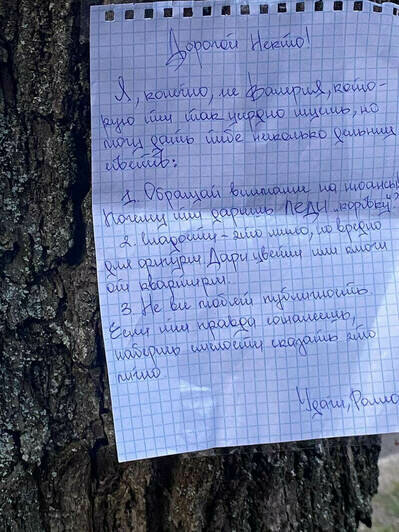 Дорогой Некто!
Я, конечно, не Валерия, кото-
рую ты так усердно ищешь, но
могу дать тебе несколько дельных
советов:
1. Обращай внимание на нюансы
Почему ты даришь ЛЕДИ „коровку"?
2. Сладости – это мило, но вредно
для фигуры. Дари цветы или ключи
от квартиры.
3. Не все любят публичность.
Если ты правда сожалеешь,
наберись смелости сказать это
лично
Удачи, Ромео